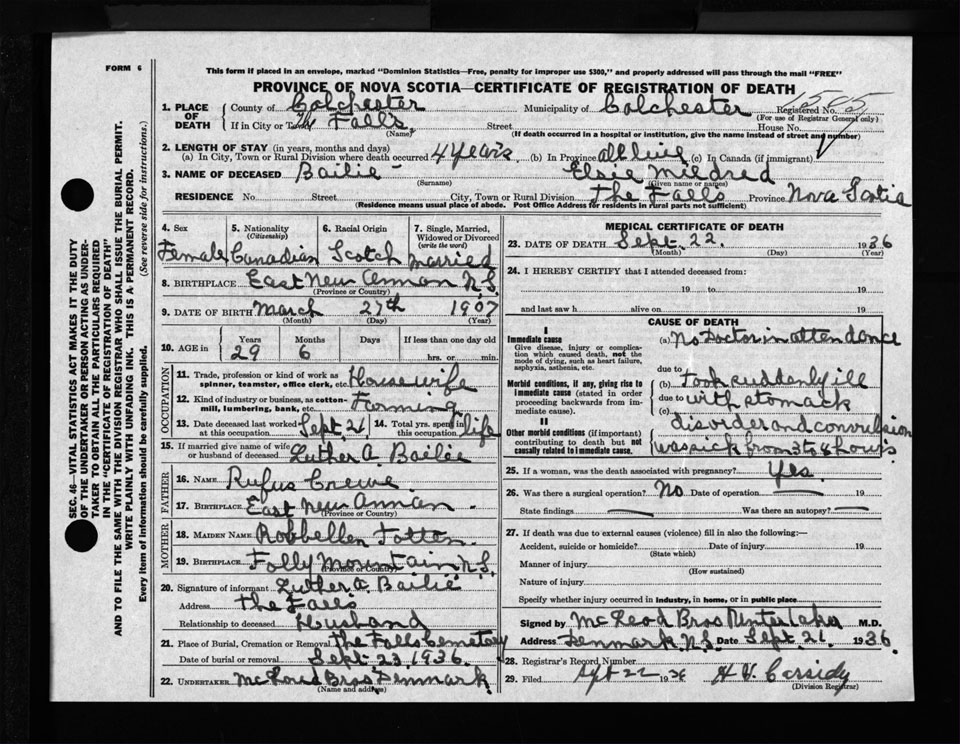 FORM 6
This form if placed in an envelope, marked "Dominion Statistics—Free, penalty for improper use $300," and properly addressed will pass through the mail "FREE"
PROVINCE OF NOVA SCOTIA—CERTIFICATE OF REGISTRATION OF DEATH
SEC. 46—VITAL STATISTICS ACT MAKES IT THE DUTY
OF THE UNDERTAKER OR PERSON ACTING AS UNDER-
TAKER TO OBTAIN ALL THE PARTICULARS REQUIRED
IN THE "CERTIFICATE OF REGISTRATION OF DEATH"
AND TO FILE THE SAME WITH THE DIVISION REGISTRAR WHO SHALL ISSUE THE BURIAL PERMIT.
WRITE PLAINLY WITH UNFADING INK. THIS IS A PERMANENT RECORD.
Every item of information should be carefully supplied. (See reverse side for instructions.)
1. PLACE OF DEATH
County of Colchester Municipality of Colchester Registered No.
(For use of Registrar General only)
If in City or Town The Falls Street House No.
(Name) (If death occurred in a hospital or institution, give the name instead of street and number)
2. LENGTH OF STAY (in years, months and days)
(a) In City, Town or Rural Division where death occurred 4 years (b) In Province (c) In Canada (if immigrant)
3. NAME OF DECEASED Bailie Elsie Mildred
(Surname) (Given name or names)
RESIDENCE No. Street City, Town or Rural Division The Falls Province Nova Scotia
(Residence means usual place of abode. Post Office Address for residents in rural parts not sufficient)
4. Sex 5. Nationality (Citizenship) 6. Racial Origin 7. Single, Married, Widowed or Divorced (write the word)
Female Canadian Scotch Married
8. BIRTHPLACE East New Annan N.S.
(Province or Country)
9. DATE OF BIRTH March 27th 1907
(Month) (Day) (Year)
10. AGE in Years Months Days If less than one day old
29 6 hrs. or min.
OCCUPATION
11. Trade, profession or kind of work as spinner, teamster, office clerk, etc. Housewife
12. Kind of industry or business, as cotton-mill, lumbering, bank, etc. Farming
13. Date deceased last worked at this occupation Sept 21 14. Total yrs. spent in this occupation life
15. If married give name of wife or husband of deceased Luther A. Bailie
FATHER
16. NAME Rufus Crewe
17. BIRTHPLACE East New Annan
(Province or Country)
MOTHER
18. MAIDEN NAME Robbellen Totten
19. BIRTHPLACE Folly Mountain N.S.
(Province or Country)
20. Signature of informant Luther A. Bailie
Address The Falls
Relationship to deceased Husband
21. Place of Burial, Cremation or Removal The Falls Cemetary
Date of burial or removal Sept. 23 1936
22. UNDERTAKER McLeod Bros Denmark
(Name and address)
MEDICAL CERTIFICATE OF DEATH
23. DATE OF DEATH Sept. 22. 1936
(Month) (Day) (Year)
24. I HEREBY CERTIFY that I attended deceased from:
19 to 19
and last saw h alive on 19
CAUSE OF DEATH
I
Immediate cause
Give disease, injury or complication which caused death, not the mode of dying, such as heart failure, asphyxia, asthenia, etc.
(a) No Doctor in attendance
due to
Morbid conditions, if any, giving rise to immediate cause (stated in order proceeding backwards from immediate cause).
(b) took suddenly ill
due to with stomack
(c)
II
Other morbid conditions (if important) contributing to death but not causally related to immediate cause.
disorder and convulsion
was sick from 3 to 8 hours
25. If a woman, was the death associated with pregnancy? Yes
26. Was there a surgical operation? No Date of operation 19
State findings Was there an autopsy?
27. If death was due to external causes (violence) fill in also the following:—
Accident, suicide or homicide? Date of injury 19
(State which)
Manner of injury
(How sustained)
Nature of injury
Specify whether injury occurred in industry, in home, or in public place
Signed by McLeod Bros M.D.
Address Denmark N.S. Date Sept. 21 1936
28. Registrar's Record Number
29. Filed Sept 22 1936 H. V. Cassidy
(Division Registrar)